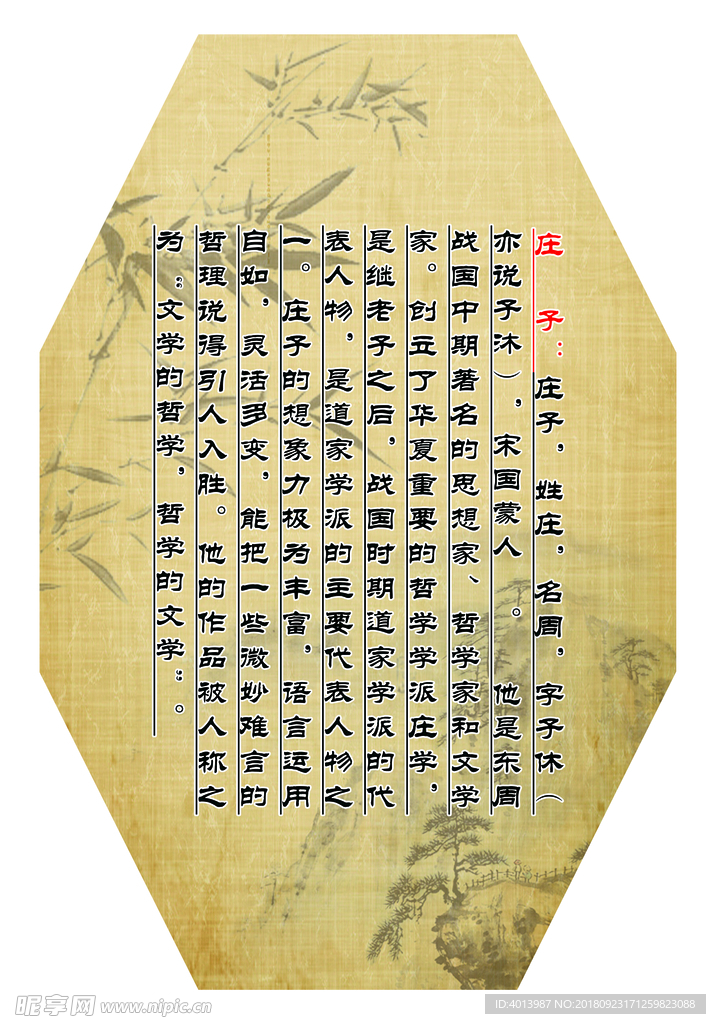 庄 子：庄子，姓庄，名周，字子休（
亦说子沐），宋国蒙人 。 他是东周
战国中期著名的思想家、哲学家和文学
家。创立了华夏重要的哲学学派庄学，
是继老子之后，战国时期道家学派的代
表人物，是道家学派的主要代表人物之
一。庄子的想象力极为丰富，语言运用
自如，灵活多变，能把一些微妙难言的
哲理说得引人入胜。他的作品被人称之
为“文学的哲学，哲学的文学”。
昵享网 www.nipic.cn
ID:4013987 NO:20180923171259823088